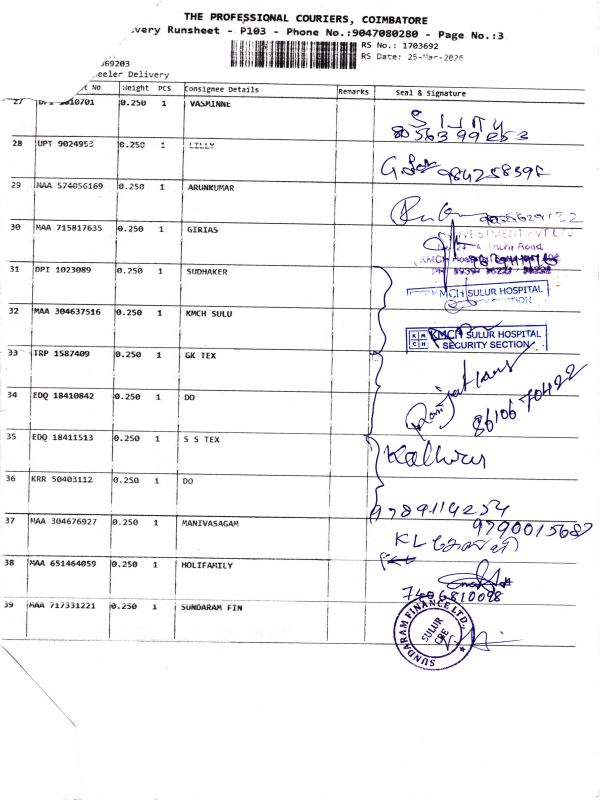 THE PROFESSIONAL COURIERS, COIMBATORE
very Runsheet - P103 - Phone No.:9047080280 - Page No.:3
RS No.: 1703692
RS Date: 25-Mar-2026
69203
eeler Delivery
No Weight PCS Consignee Details Remarks Seal & Signature
27 1010701 0.250 1 VASMINNE
8056399253
28 UPT 9024953 0.250 1 LILLY
29 MAA 574056169 0.250 1 ARUNKUMAR
30 MAA 715817635 0.250 1 GIRIAS
31 DPI 1023089 0.250 1 SUDHAKER
KMCH SULUR HOSPITAL
32 MAA 304637516 0.250 1 KMCH SULU
KMCH SULUR HOSPITAL
SECURITY SECTION
33 TRP 1587409 0.250 1 GK TEX
34 EDQ 18410842 0.250 1 DO
8610670422
35 EDQ 18411513 0.250 1 S S TEX
36 KRR 50403112 0.250 1 DO
9789114254
37 MAA 304676927 0.250 1 MANIVASAGAM
9790015687
KL
38 MAA 651464059 0.250 1 HOLIFAMILY
7406810098
39 MAA 717331221 0.250 1 SUNDARAM FIN
SUNDARAM FINANCE LTD.,
SULUR
CBE